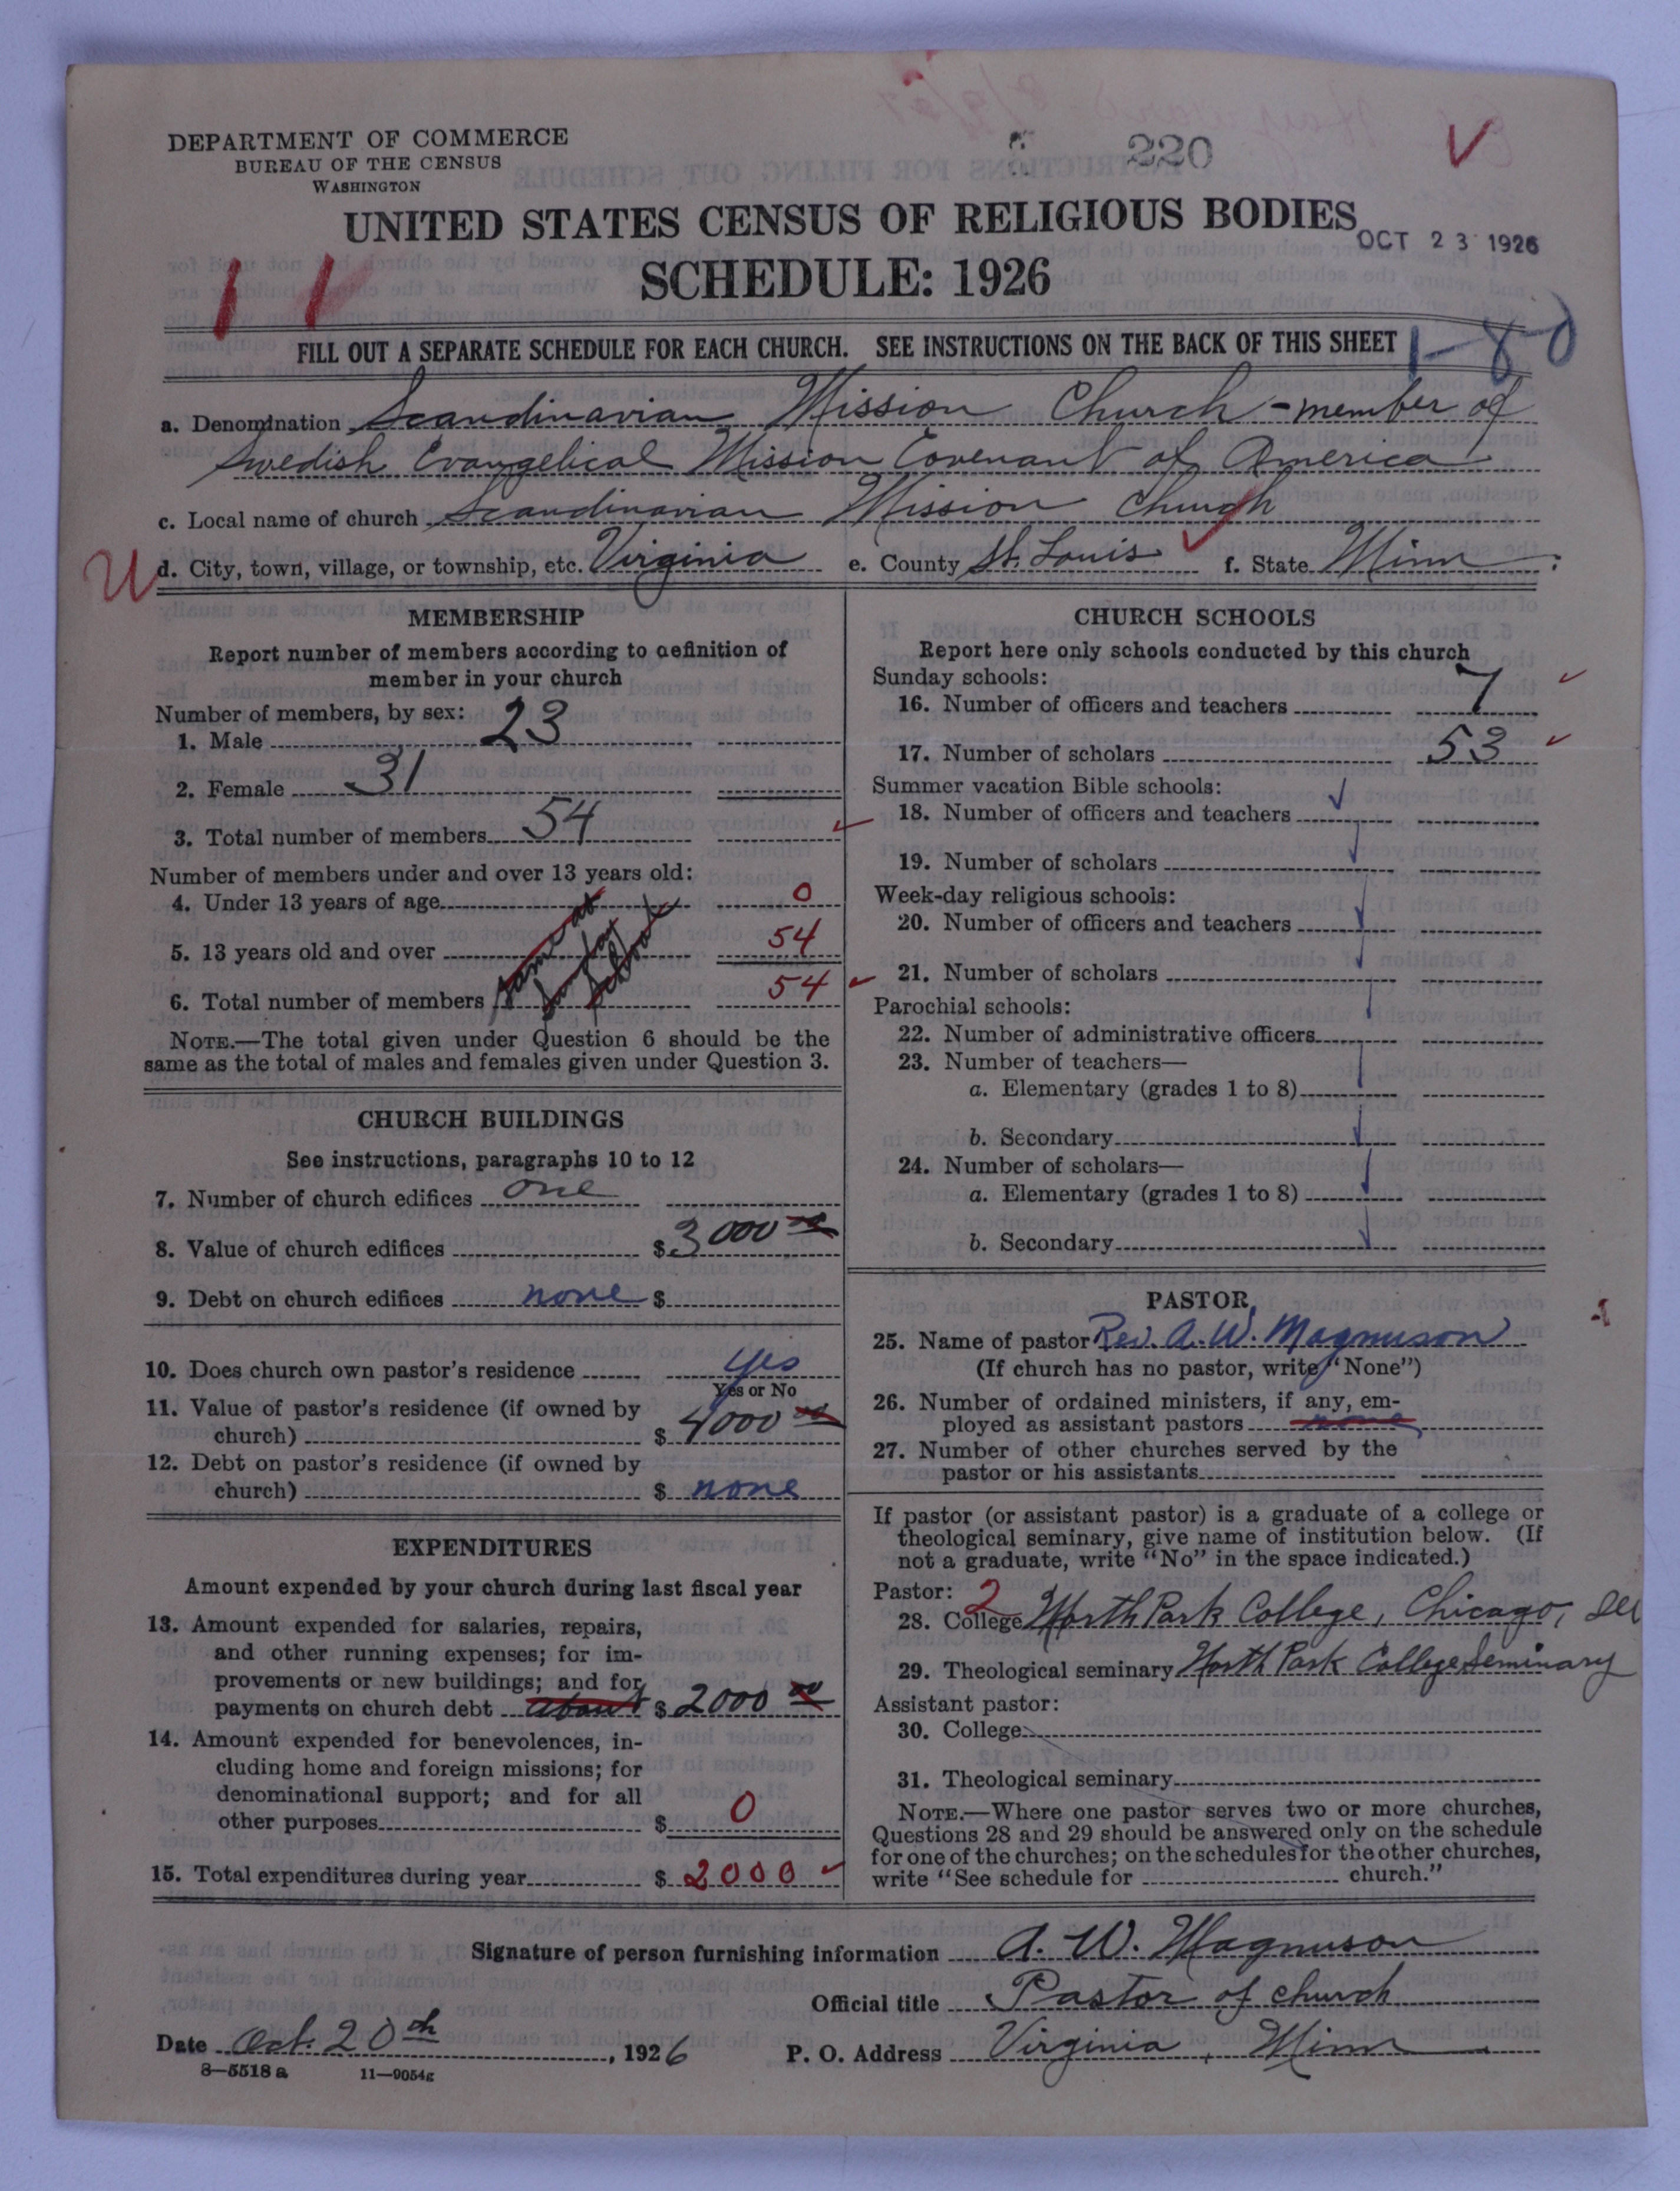 DEPARTMENT OF COMMERCE
BUREAU OF THE CENSUS
WASHINGTON
220
UNITED STATES CENSUS OF RELIGIOUS BODIES
OCT 23 1926
SCHEDULE: 1926
11
FILL OUT A SEPARATE SCHEDULE FOR EACH CHURCH. SEE INSTRUCTIONS ON THE BACK OF THIS SHEET
1-80
a. Denomination Scandinavian Mission Church - member of
Swedish Evangelical Mission Covenant of America
c. Local name of church Scandinavian Mission Church
d. City, town, village, or township, etc. Virginia e. County St. Louis f. State Minn
MEMBERSHIP
Report number of members according to definition of
member in your church
Number of members, by sex:
1. Male 23
2. Female 31
3. Total number of members 54
Number of members under and over 13 years old:
4. Under 13 years of age 0
5. 13 years old and over 54
6. Total number of members 54
same as
Sunday
School
NOTE.—The total given under Question 6 should be the
same as the total of males and females given under Question 3.
CHURCH BUILDINGS
See instructions, paragraphs 10 to 12
7. Number of church edifices one
8. Value of church edifices $ 3000 00
9. Debt on church edifices none $
10. Does church own pastor's residence yes
Yes or No
11. Value of pastor's residence (if owned by
church) $ 4000 00
12. Debt on pastor's residence (if owned by
church) $ none
EXPENDITURES
Amount expended by your church during last fiscal year
13. Amount expended for salaries, repairs,
and other running expenses; for im-
provements or new buildings; and for
payments on church debt about $ 2000 00
14. Amount expended for benevolences, in-
cluding home and foreign missions; for
denominational support; and for all
other purposes $ 0
15. Total expenditures during year $ 2000
CHURCH SCHOOLS
Report here only schools conducted by this church
Sunday schools:
16. Number of officers and teachers 7
17. Number of scholars 53
Summer vacation Bible schools:
18. Number of officers and teachers
19. Number of scholars
Week-day religious schools:
20. Number of officers and teachers
21. Number of scholars
Parochial schools:
22. Number of administrative officers
23. Number of teachers—
a. Elementary (grades 1 to 8)
b. Secondary
24. Number of scholars—
a. Elementary (grades 1 to 8)
b. Secondary
PASTOR
25. Name of pastor Rev. A. W. Magnuson
(If church has no pastor, write "None")
26. Number of ordained ministers, if any, em-
ployed as assistant pastors none
27. Number of other churches served by the
pastor or his assistants
If pastor (or assistant pastor) is a graduate of a college or
theological seminary, give name of institution below. (If
not a graduate, write "No" in the space indicated.)
Pastor: 2
28. College North Park College, Chicago, Ill
29. Theological seminary North Park College Seminary
Assistant pastor:
30. College
31. Theological seminary
NOTE.—Where one pastor serves two or more churches,
Questions 28 and 29 should be answered only on the schedule
for one of the churches; on the schedules for the other churches,
write "See schedule for church."
Signature of person furnishing information A. W. Magnuson
Official title Pastor of church
Date Oct. 20th, 1926 P. O. Address Virginia, Minn
8—5518 a 11—9054g